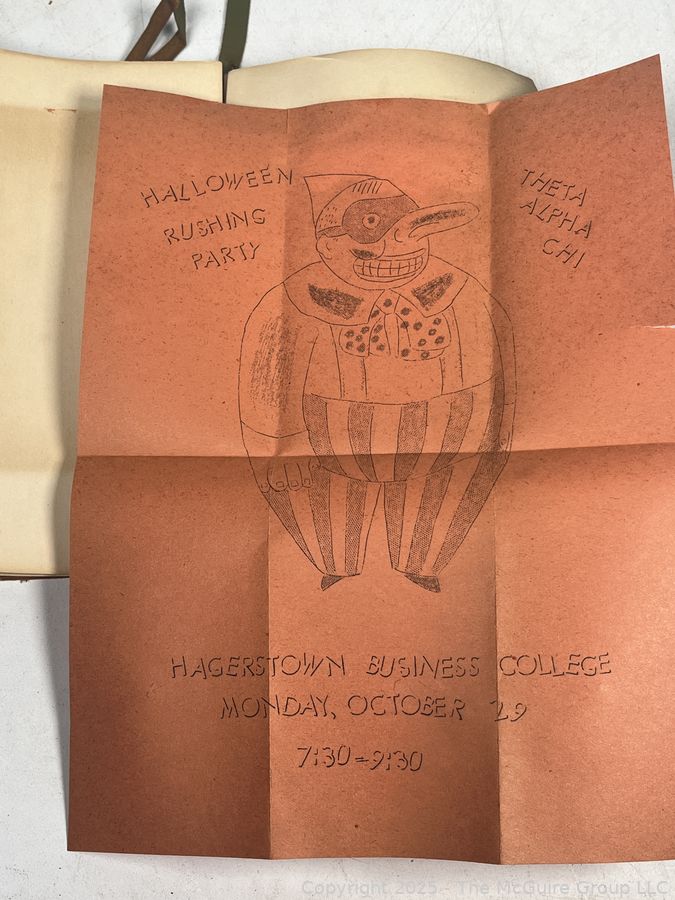 HALLOWEEN
RUSHING
PARTY
THETA
ALPHA
CHI
HAGERSTOWN BUSINESS COLLEGE
MONDAY, OCTOBER 29
7:30-9:30
Copyright 2025 - The McGuire Group LLC